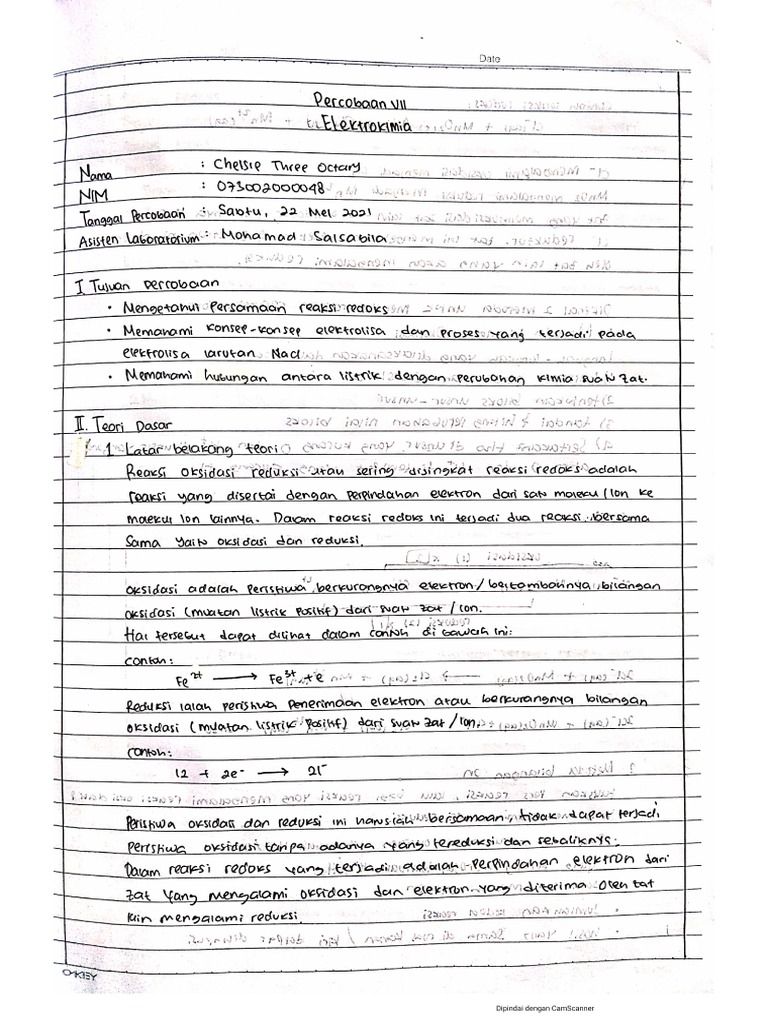 Date
Percobaan VII
Elektrokimia
Nama : Chelsie Three Octary
NIM : 073002000048
Tanggal Percobaan : Sabtu, 22 Mei 2021
Asisten Laboratorium : Mohamad Salsabila
I. Tujuan percobaan
• Mengetahui Persamaan reaksi redoks
• Memahami konsep-konsep elektrolisa dan proses yang terjadi pada
elektrolisa larutan Nacl
• Memahami hubungan antara listrik dengan perubahan kimia suatu zat.
II. Teori Dasar
1. Latar belakang teori
Reaksi oksidasi reduksi atau sering disingkat reaksi redoks adalah
reaksi yang disertai dengan perpindahan elektron dari satu molekul/Ion ke
molekul Ion lainnya. Dalam reaksi redoks ini terjadi dua reaksi bersama
sama yaitu oksidasi dan reduksi.
oksidasi adalah peristiwa berkurangnya elektron/bertambahnya bilangan
oksidasi (muatan listrik positif) dari suatu zat/Ion.
Hal tersebut dapat dilihat dalam contoh di bawah ini:
contoh:
Fe²⁺ → Fe³⁺ + e
Reduksi ialah peristiwa penerimaan elektron atau berkurangnya bilangan
oksidasi (muatan listrik positif) dari suatu zat/Ion.
contoh:
I2 + 2e⁻ → 2I⁻
Peristiwa oksidasi dan reduksi ini haruslah bersamaan, tidak dapat terjadi
peristiwa oksidasi tanpa adanya yang tereduksi dan sebaliknya.
Dalam reaksi redoks yang terjadi adalah perpindahan elektron dari
zat yang mengalami oksidasi dan elektron yang diterima oleh zat
lain mengalami reduksi.
OKEY
Dipindai dengan CamScanner